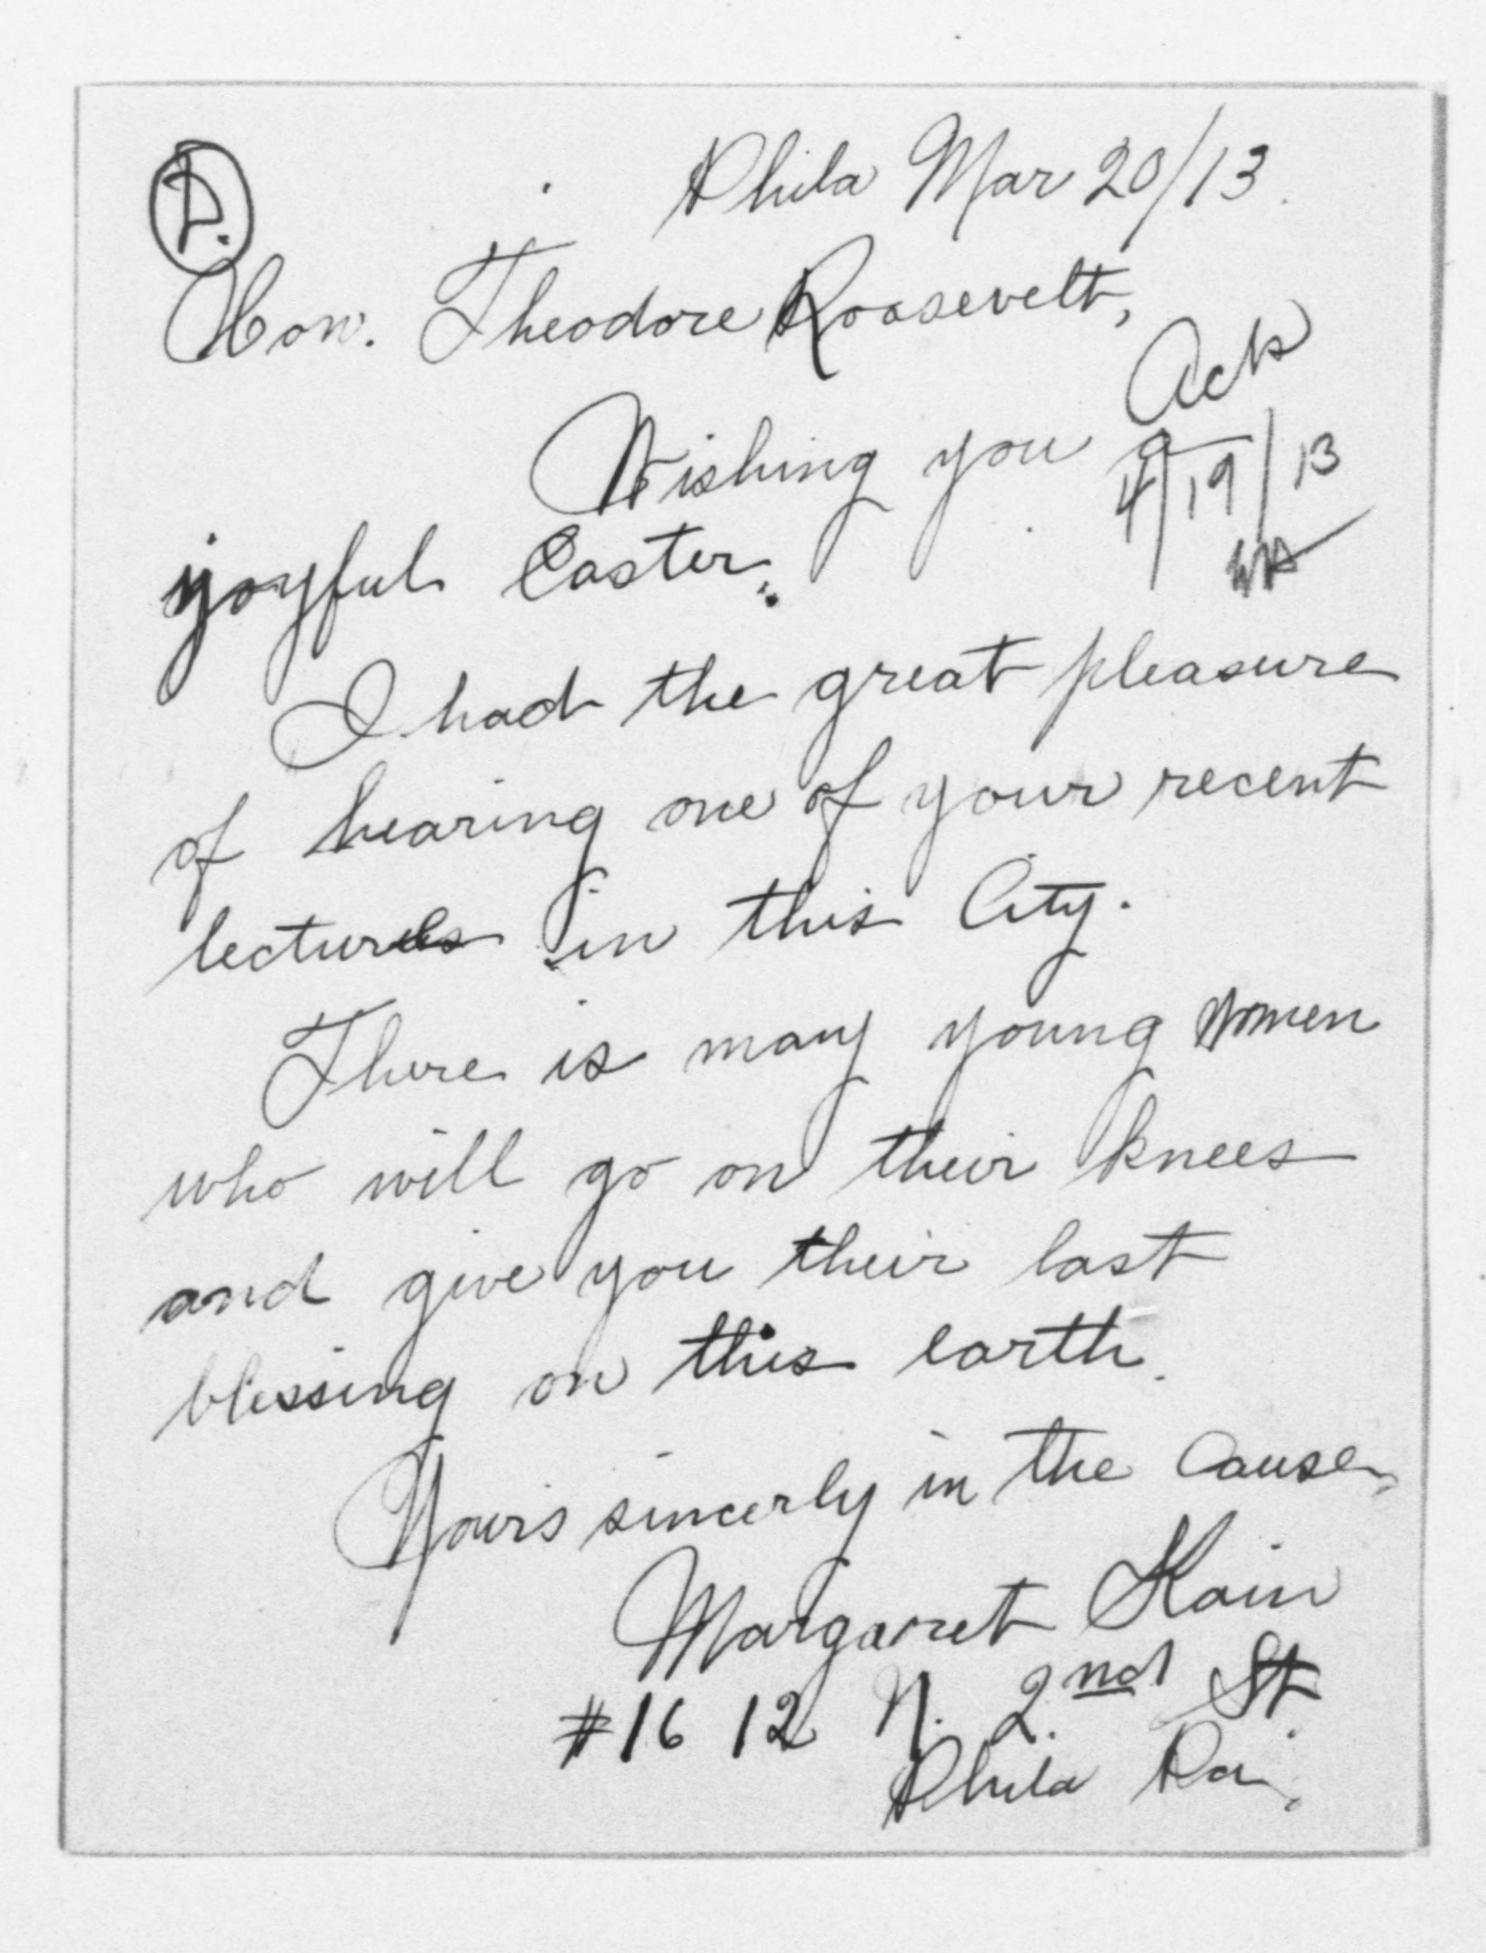 P.
Phila Mar 20/13.
Hon. Theodore Roosevelt,
Ack
Wishing you a
4/19/13
joyful Easter.
I had the great pleasure
of hearing one of your recent
lectures in this City.
There is many young women
who will go on their knees
and give you their last
blessing on this earth.
Yours sincerly in the Cause,
Margaret Kain
#1612 N. 2nd St.
Phila Pa.